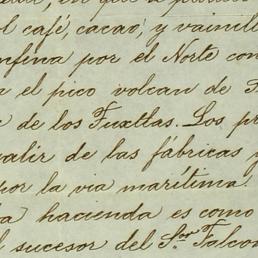 el café, cacao, y vainill
onfina por el Norte con
a el pico volcan de S
a de los Tuxtlas. Los pr
valir de las fábricas y
por la via marítima.
ha hacienda es como
l sucesor del Sor Falcon